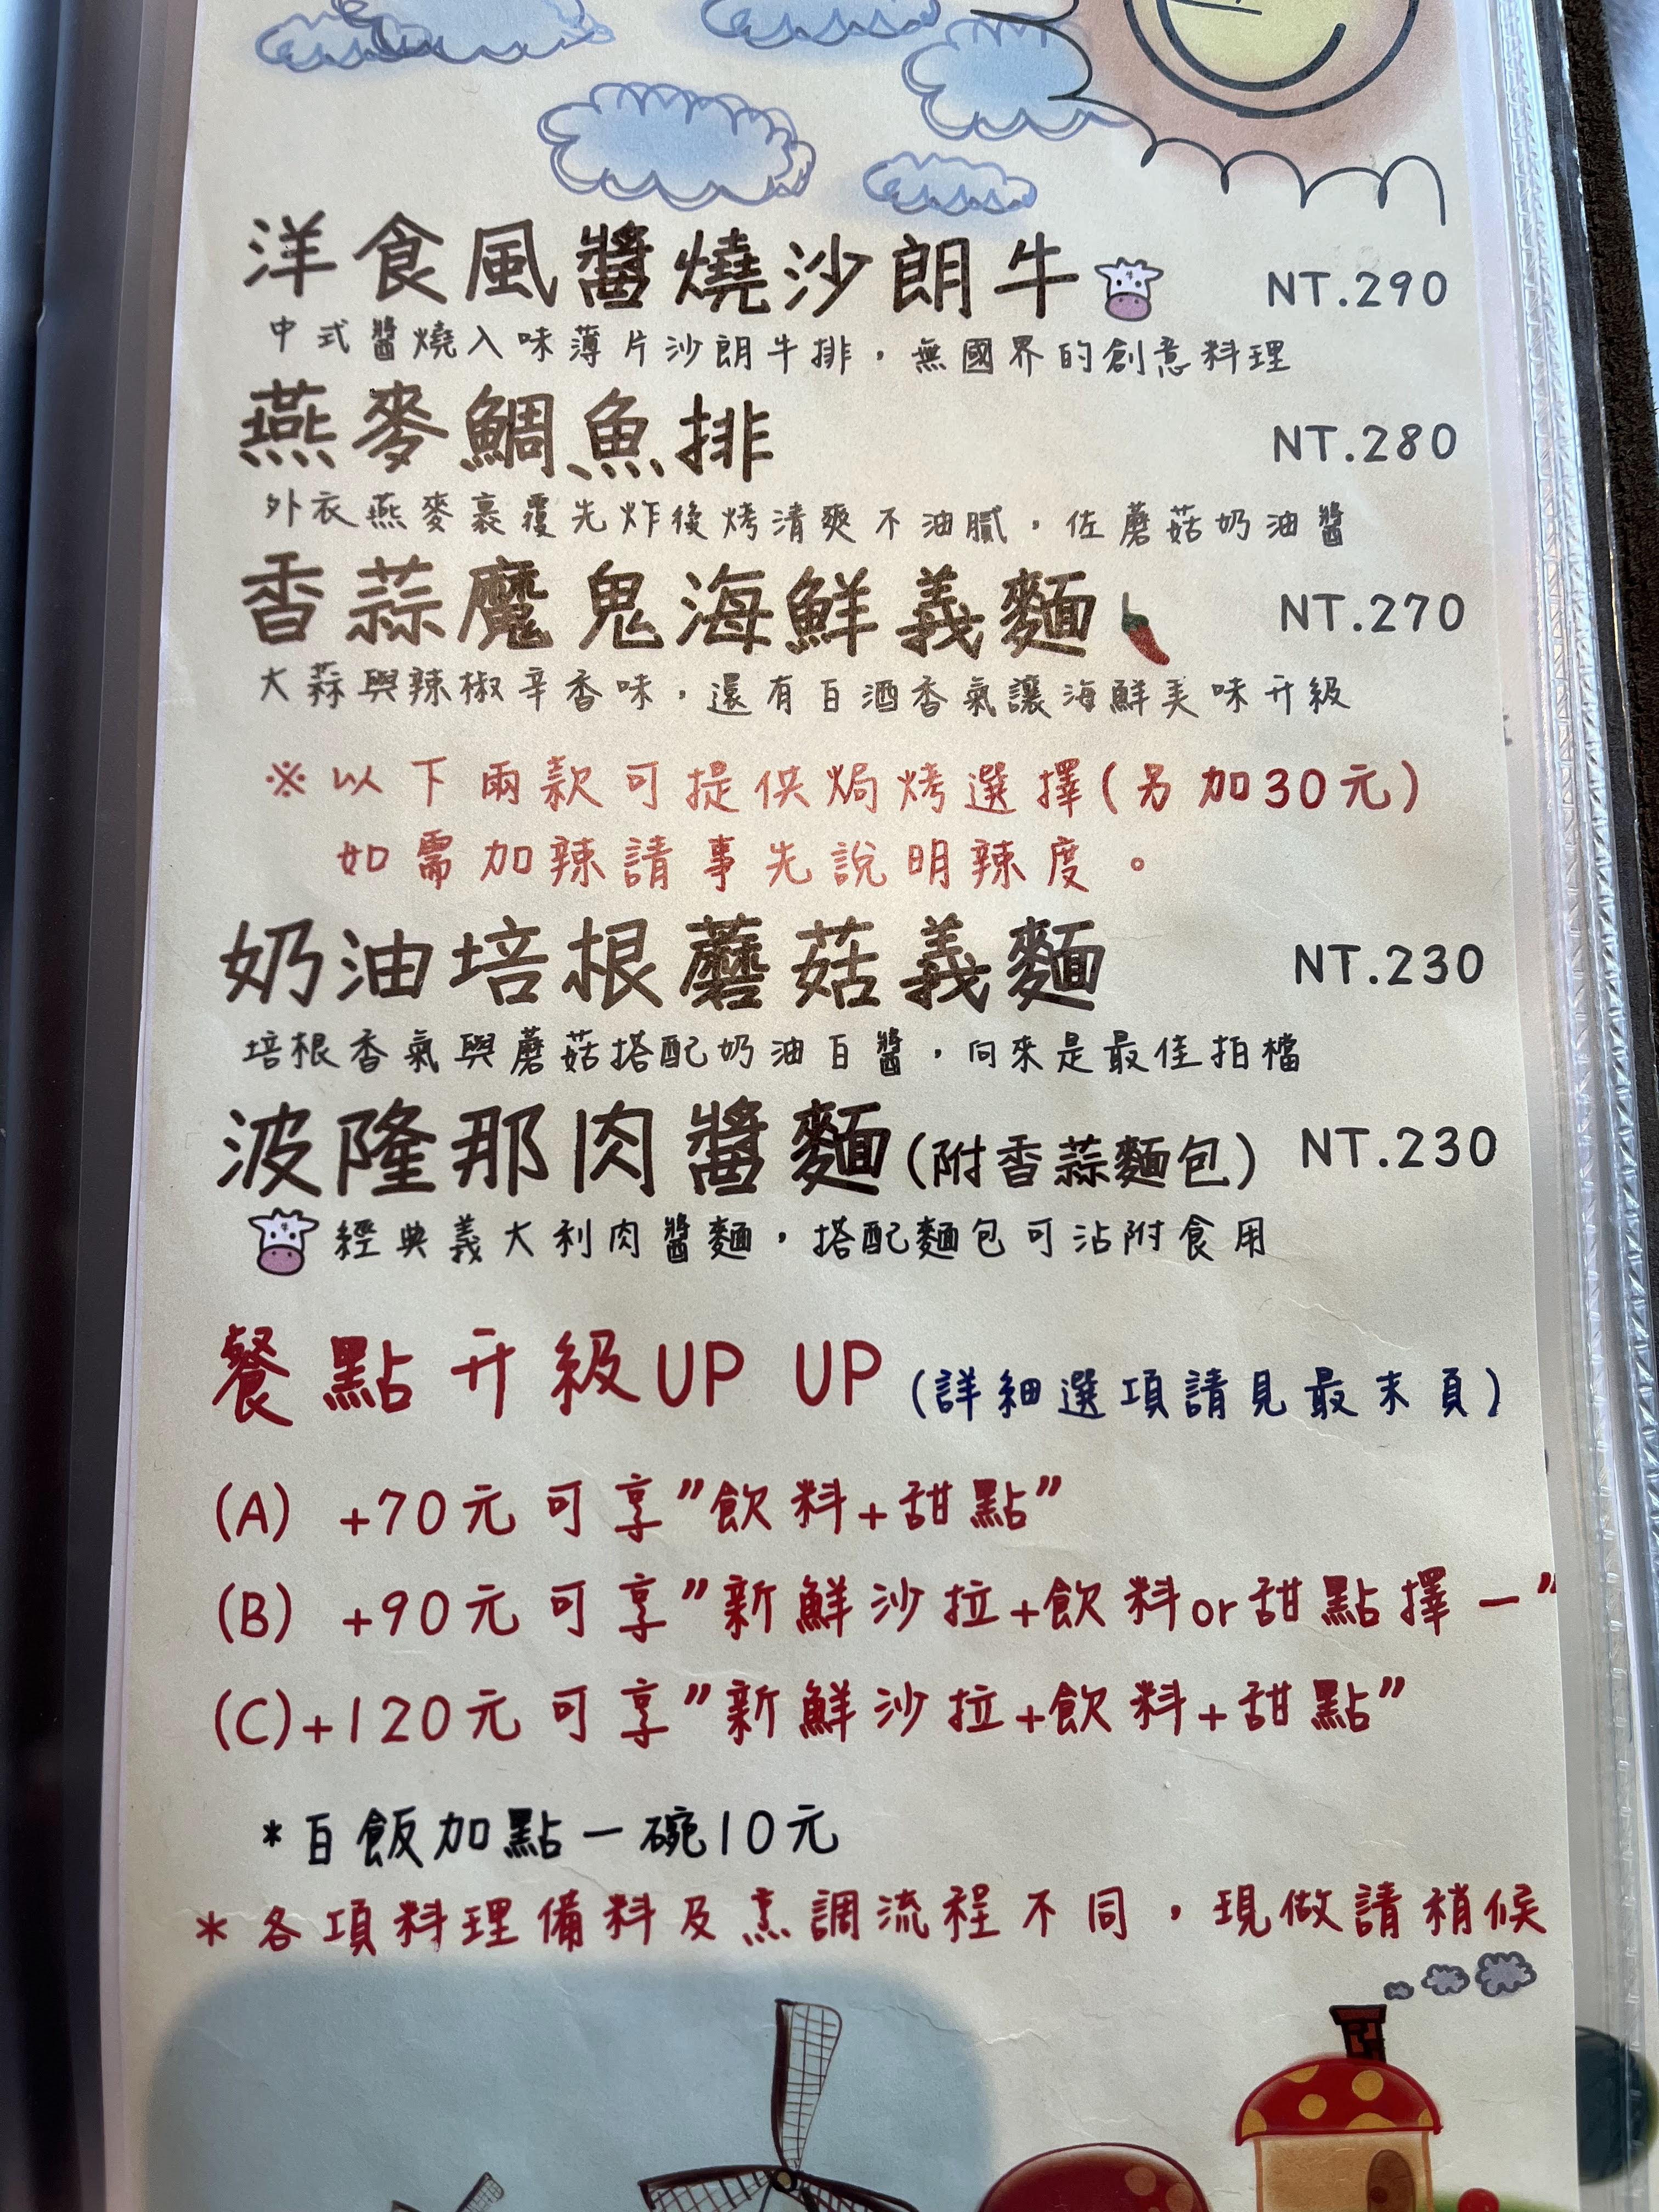 洋食風醬燒沙朗牛 NT.290
中式醬燒入味薄片沙朗牛排，無國界的創意料理
燕麥鯛魚排 NT.280
外衣燕麥裹覆先炸後烤清爽不油膩，佐蘑菇奶油醬
香蒜魔鬼海鮮義麵 NT.270
大蒜與辣椒辛香味，還有白酒香氣讓海鮮美味升級
※以下兩款可提供焗烤選擇(另加30元)
如需加辣請事先說明辣度。
奶油培根蘑菇義麵 NT.230
培根香氣與蘑菇搭配奶油白醬，向來是最佳拍檔
波隆那肉醬麵(附香蒜麵包) NT.230
經典義大利肉醬麵，搭配麵包可沾附食用
餐點升級UP UP (詳細選項請見最末頁)
(A) +70元可享"飲料+甜點"
(B) +90元可享"新鮮沙拉+飲料or甜點擇一"
(C)+120元可享"新鮮沙拉+飲料+甜點"
*白飯加點一碗10元
*各項料理備料及烹調流程不同，現做請稍候